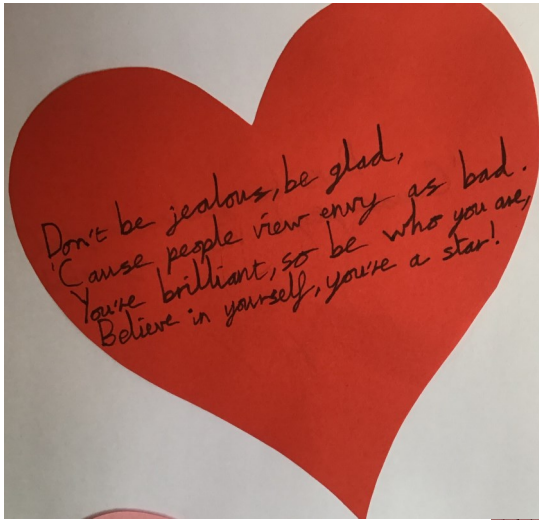 Don't be jealous, be glad,
'Cause people view envy as bad.
You're brilliant, so be who you are,
Believe in yourself, you're a star!